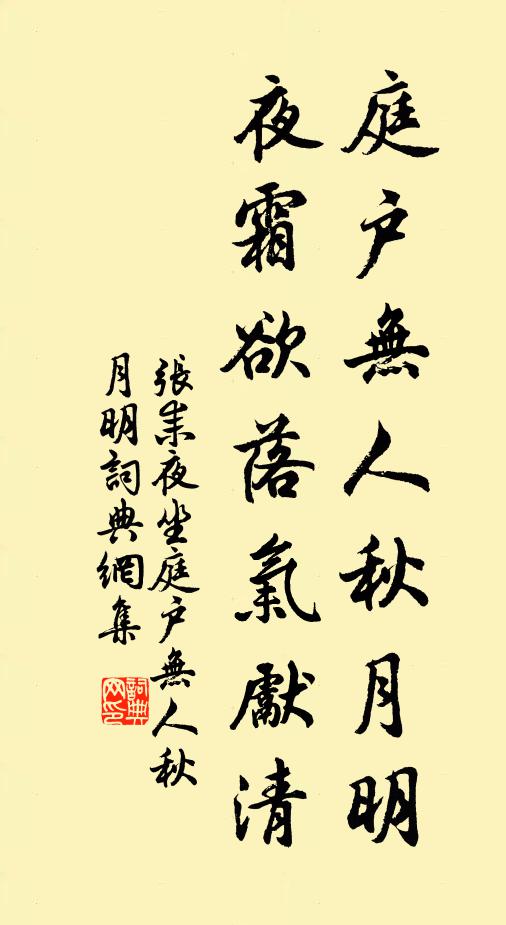 庭户無人秋月明
夜霜欲落氣獻清
張耒夜坐庭户無人秋
月明詞典網集
詞典网印